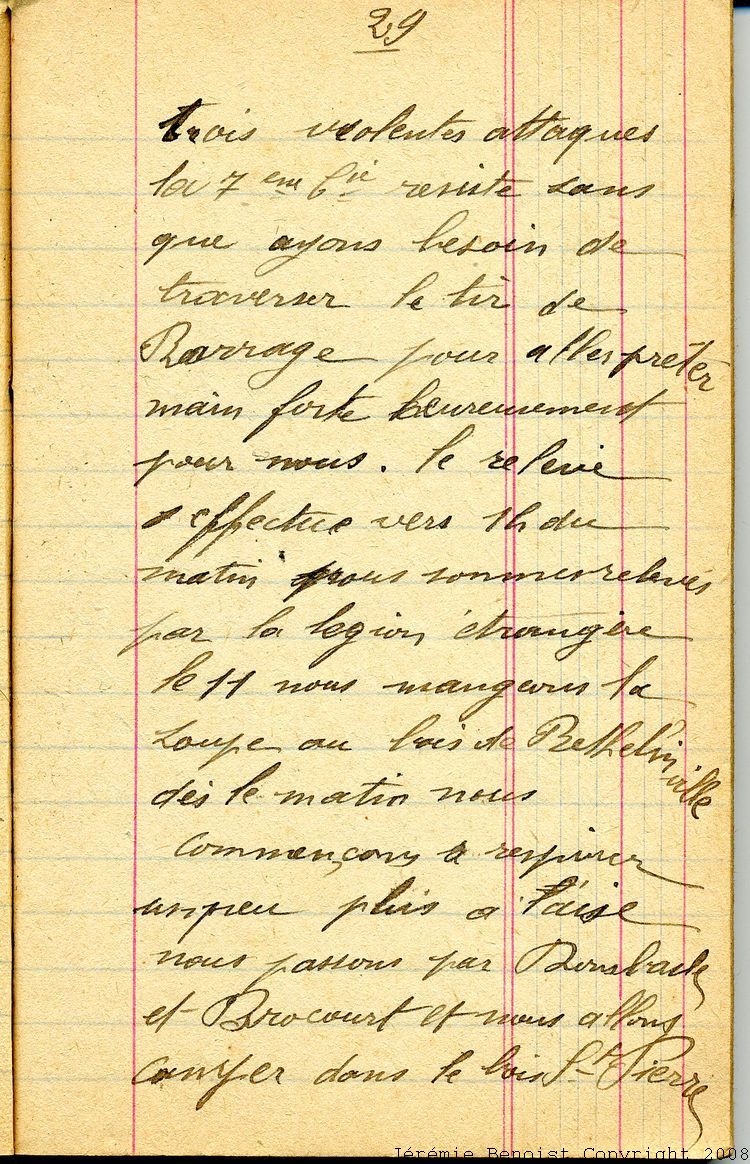 29
trois violentes attaques
la 7 eme Cie resiste sans
que ayons besoin de
traverser le tir de
Barrage pour aller prêter
main forte heureusement
pour nous. le releve
s effectue vers 1h du
matin nous sommes relevés
par la legion étrangère
le 11 nous mangeons la
soupe au bois de Bethelin
ville
dés le matin nous
commençons a respirer
un peu plus a l'aise
nous passons par
et Brocourt et nous allons
camper dans le bois St Pierre
Jérémie Benoist Copyright 2008